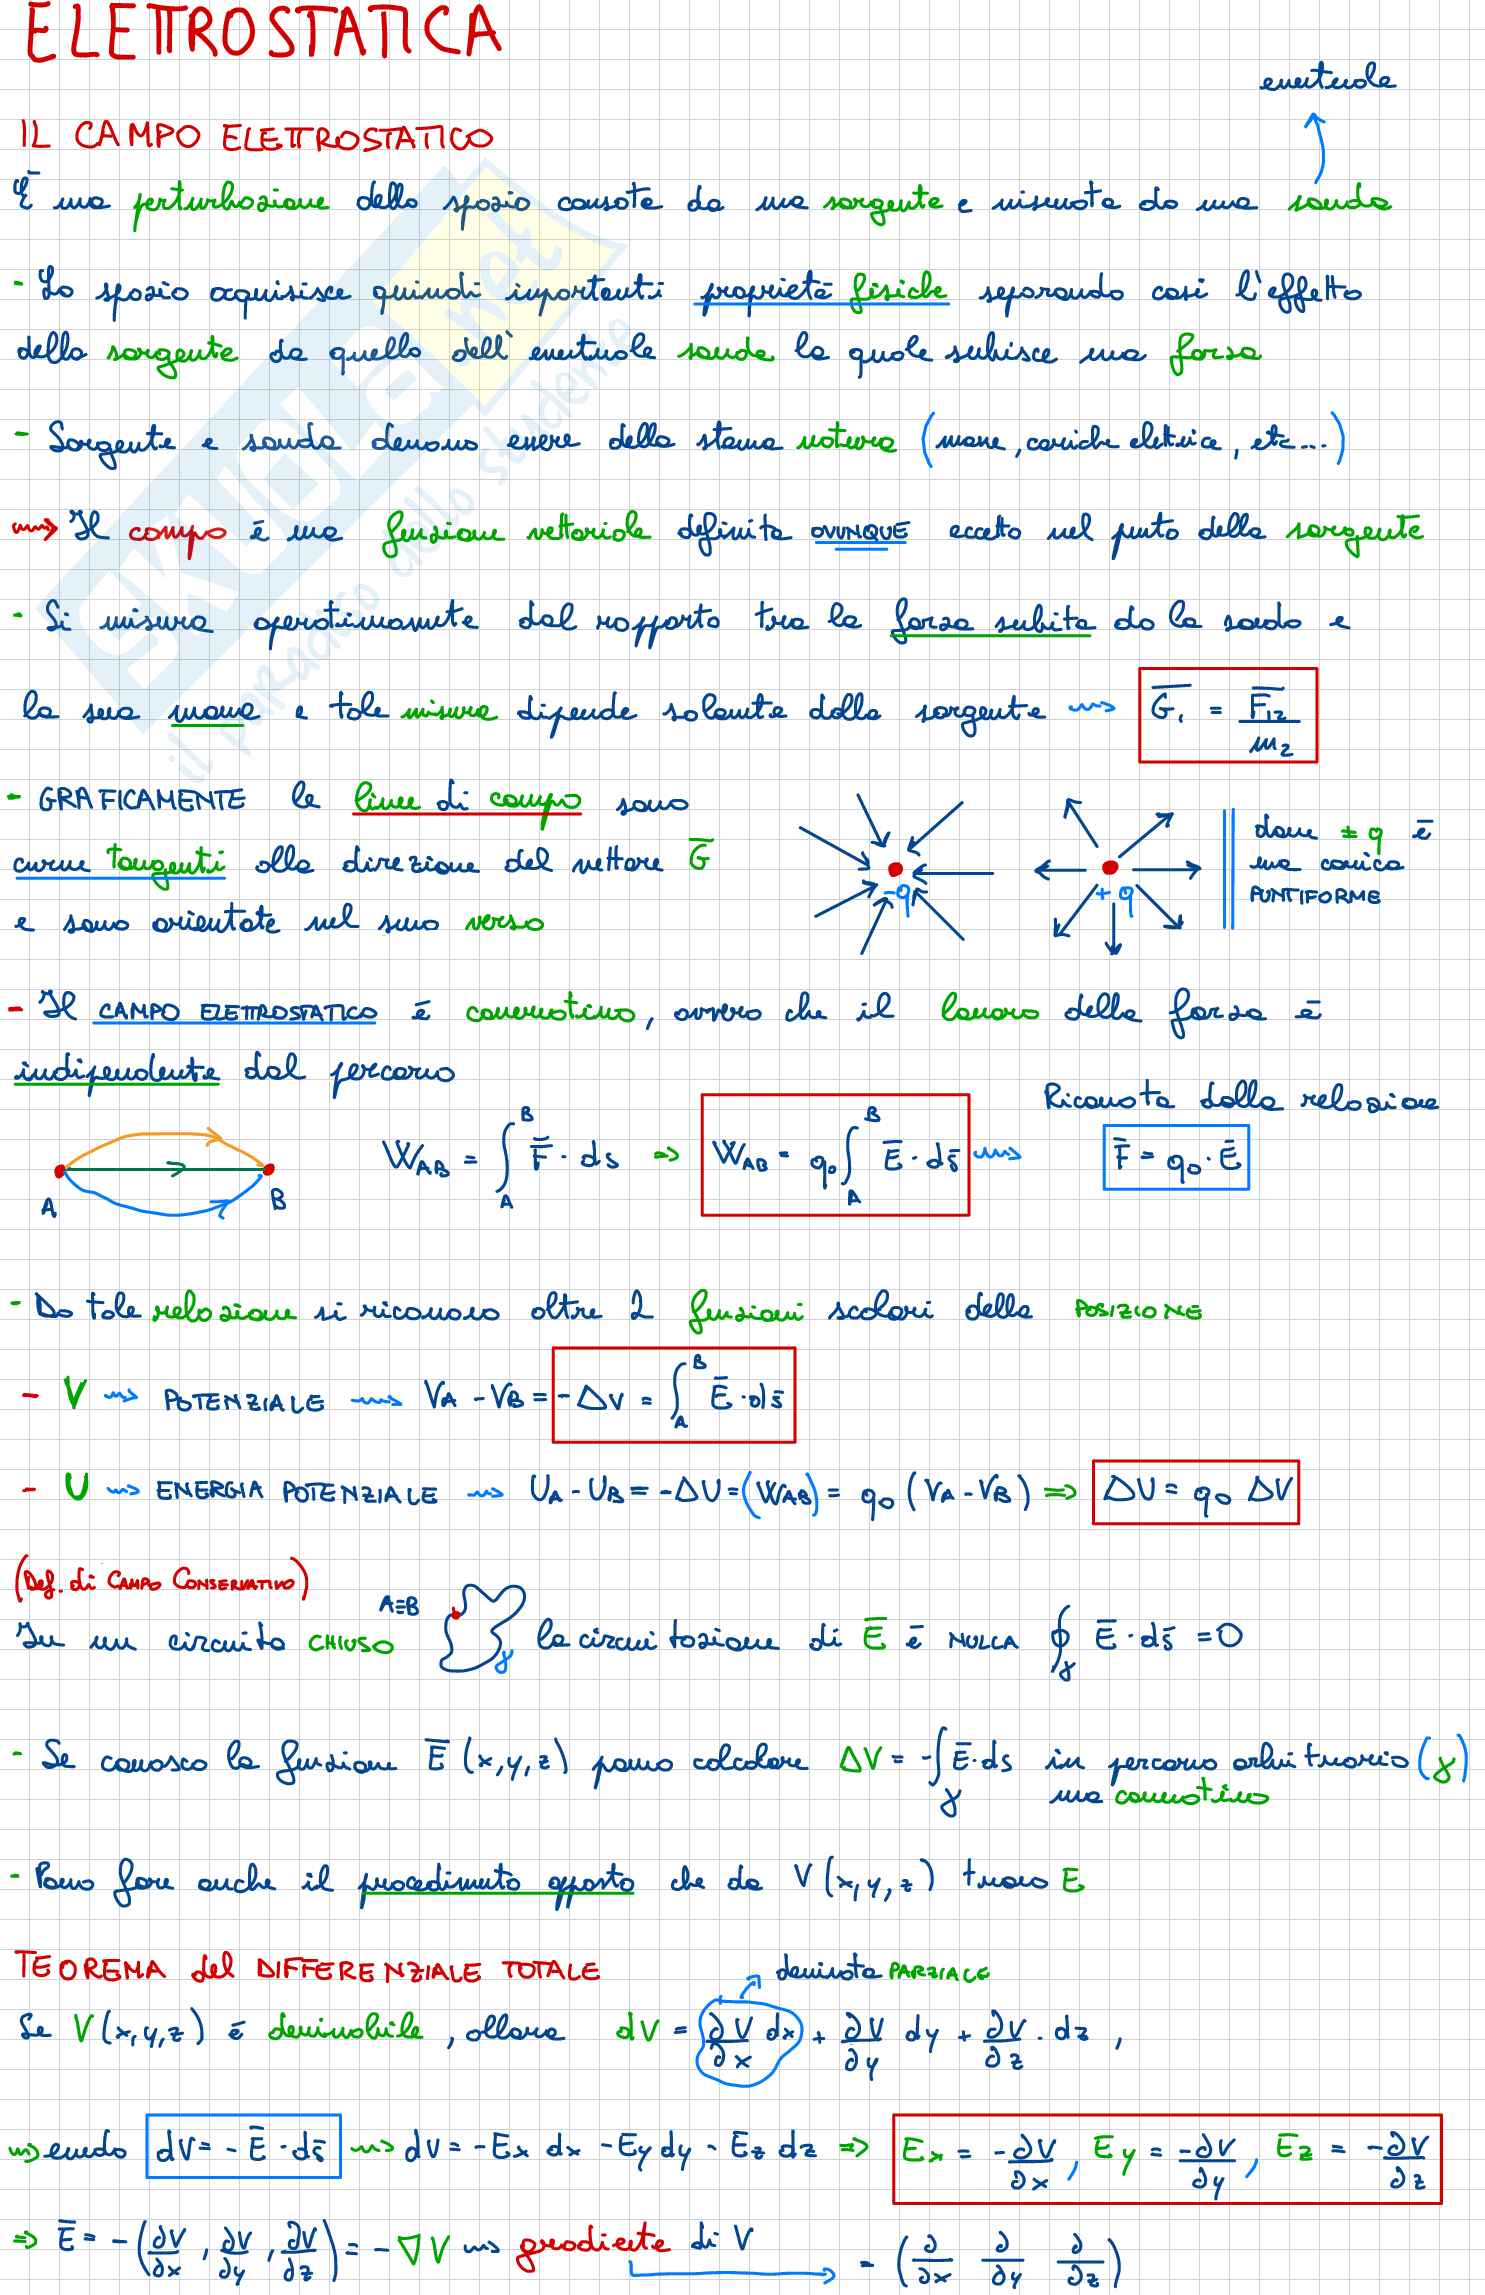 ELETTROSTATICA
eventuale
IL CAMPO ELETTROSTATICO
È una perturbazione dello spazio causata da una sorgente e misurata da una sonda
- Lo spazio acquisisce quindi importanti proprietà fisiche separando così l'effetto
della sorgente da quello dell'eventuale sonda la quale subisce una forza
- Sorgente e sonda devono essere della stessa natura (masse, cariche elettrice, etc...)
⟿ Il campo è una funzione vettoriale definita OVUNQUE eccetto nel punto della sorgente
- Si misura operativamente dal rapporto tra la forza subita da la sonda e
la sua massa e tale misura dipende solamente dalla sorgente ⟿ G̅₁ = F̅₁₂ / m₂
- GRAFICAMENTE le linee di campo sono
curve tangenti alla direzione del vettore G̅
e sono orientate nel suo verso
-q
+q
dove ± q è
una carica
PUNTIFORME
- Il CAMPO ELETTROSTATICO è conservativo, ovvero che il lavoro della forza è
indipendente dal percorso
Ricavata dalla relazione
A B W_AB = ∫_A^B F̅ · ds ⇒ W_AB = q₀ ∫_A^B E̅ · ds̅ ⟿ F̅ = q₀ · E̅
- Da tale relazione si ricavano oltre 2 funzioni scalari della POSIZIONE
- V ⟿ POTENZIALE ⟿ V_A - V_B = -ΔV = ∫_A^B E̅ · ds̅
- U ⟿ ENERGIA POTENZIALE ⟿ U_A - U_B = -ΔU = (W_AB) = q₀ (V_A - V_B) ⇒ ΔU = q₀ ΔV
(Def. di CAMPO CONSERVATIVO)
A≡B
In un circuito CHIUSO γ la circuitazione di E̅ è NULLA ∮_γ E̅ · ds̅ = 0
- Se conosco la funzione E̅ (x,y,z) posso calcolare ΔV = -∫_γ E̅ · ds in percorso arbitrario (γ)
ma conservativo
- Posso fare anche il procedimento opposto che da V(x,y,z) trovo E
TEOREMA del DIFFERENZIALE TOTALE
derivata PARZIALE
Se V(x,y,z) è derivabile, allora dV = ∂V/∂x dx + ∂V/∂y dy + ∂V/∂z · dz ,
⟿ essendo dV = - E̅ · ds̅ ⟿ dV = -Ex dx - Ey dy - Ez dz ⇒ Ex = -∂V/∂x , Ey = -∂V/∂y , Ez = -∂V/∂z
⇒ E̅ = -(∂V/∂x , ∂V/∂y , ∂V/∂z) = - ∇V ⟿ gradiente di V → = (∂/∂x ∂/∂y ∂/∂z)
SKUOLA.net
il paradiso dello studente